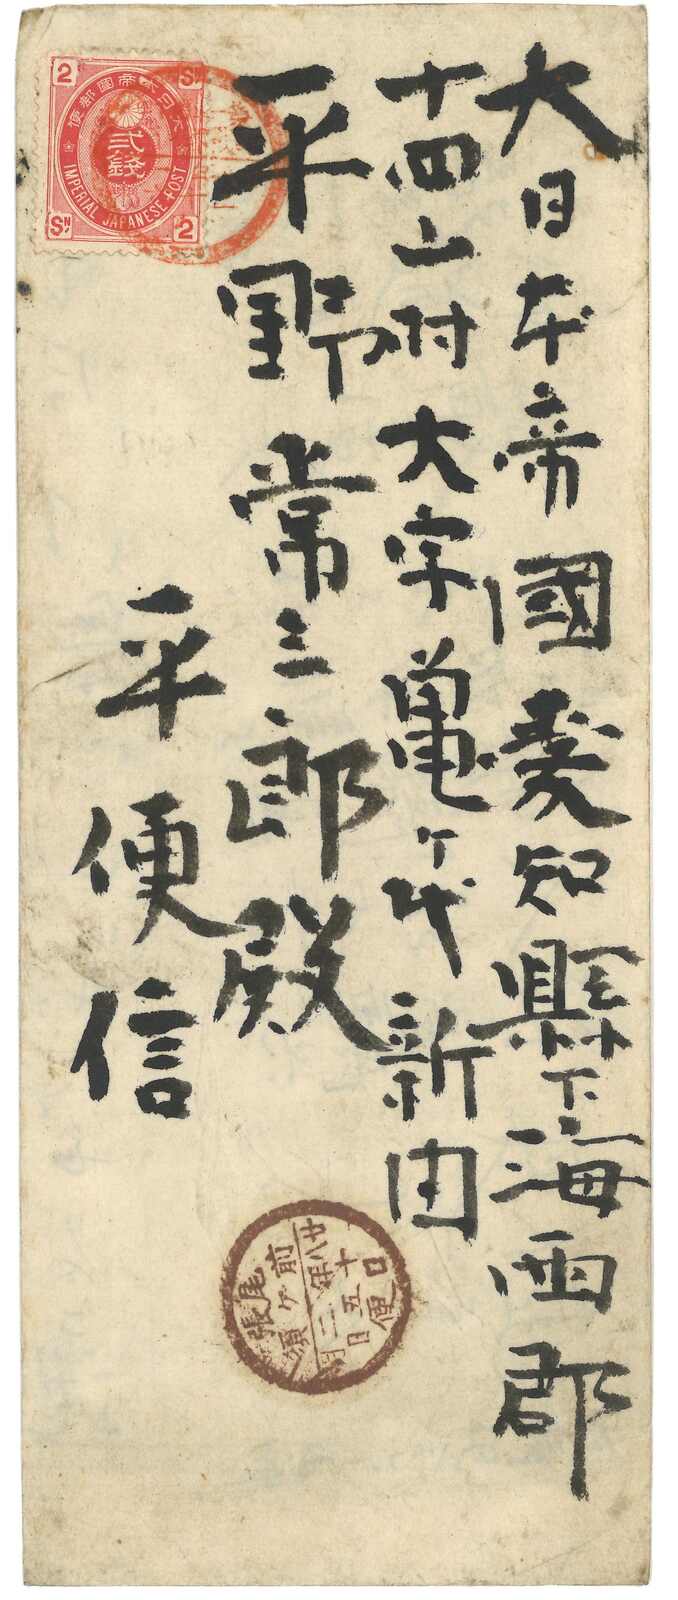 大日本帝國愛知縣下海西郡
十四山村大字亀ヶ代新田
平野常三郎殿
平便信
2
SN
大日本帝國郵便
貳錢
IMPERIAL JAPANESE POST
SN
2
尾張
前ヶ須
廿八年二月
十五日
口便